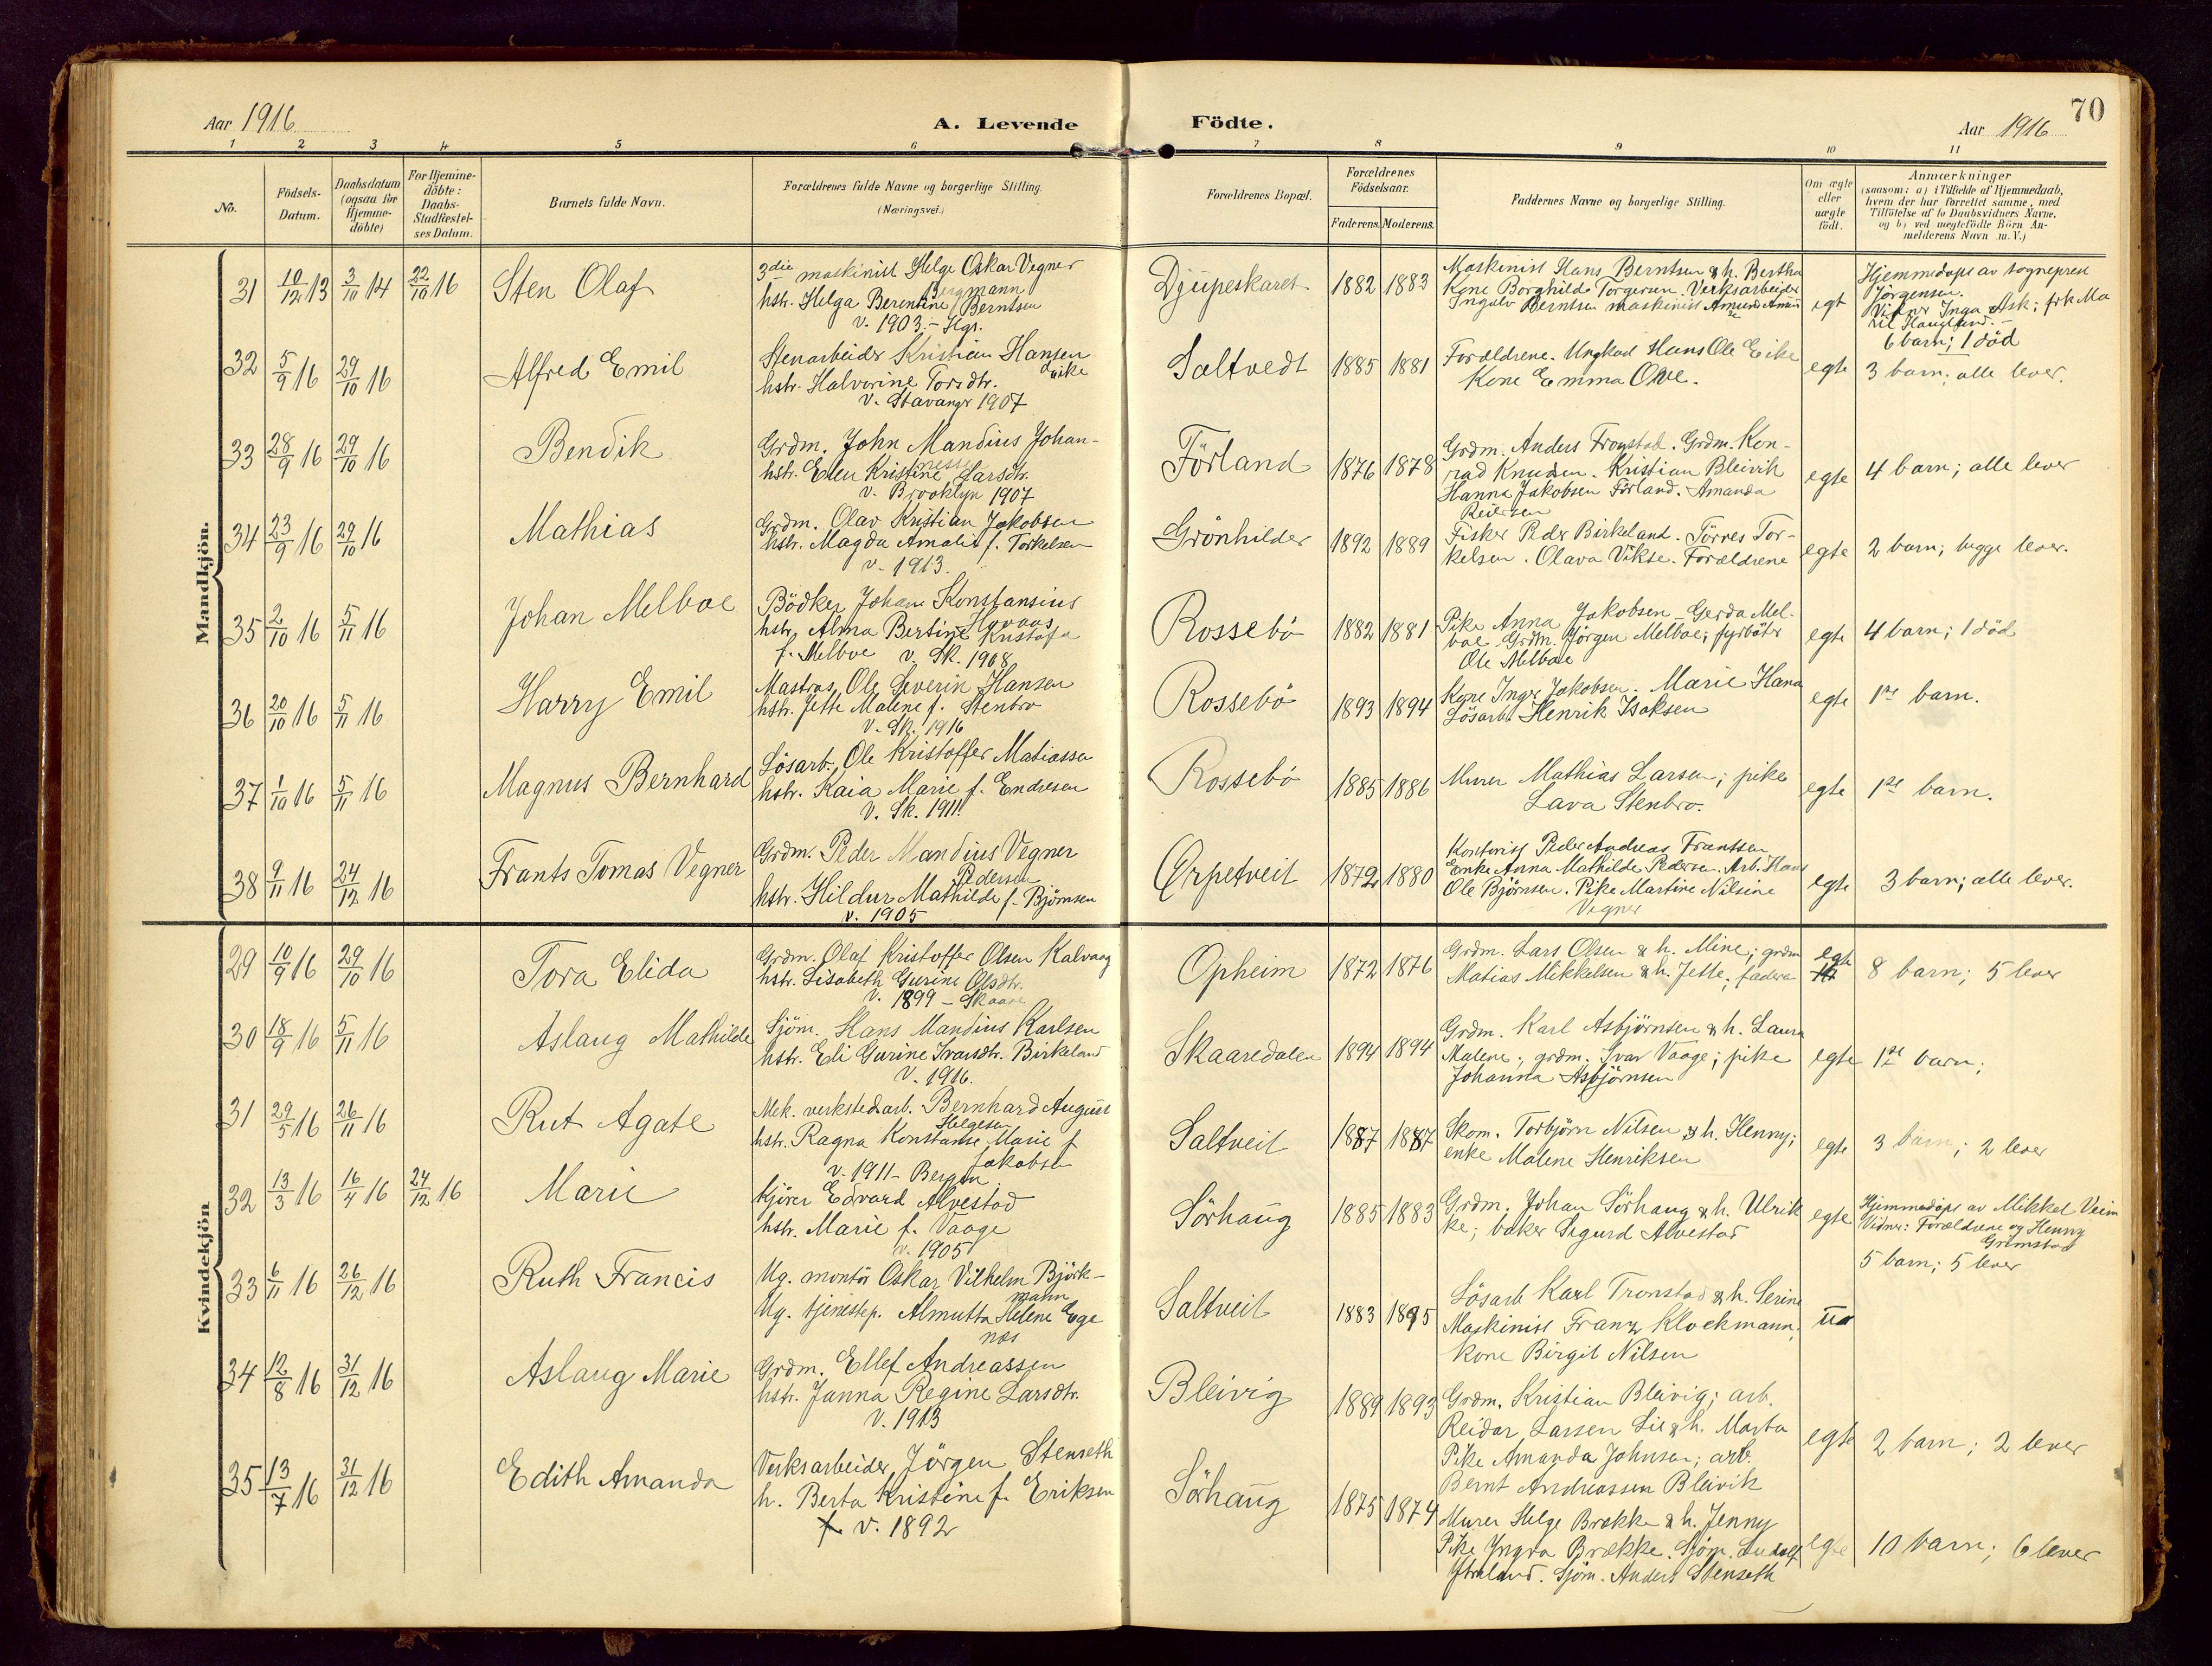 Aar 1916
A. Levende
Födte.
Aar 1916
70
1 2 3 4 5 6 7 8 9 10 11
No.
Födsels-
Datum.
Daabsdatum
(ogsaa for
Hjemme-
döbte)
For Hjemme-
döbte:
Daabs-
Stadfæstel-
ses Datum.
Barnets fulde Navn.
Forældrenes fulde Navne og borgerlige Stilling.
(Næringsvei.)
Forældrenes Bopæl.
Forældrenes
Födselsaar.
Faderens. Moderens.
Faddernes Navne og borgerlige Stilling.
Om ægte
eller
uægte
födt.
Anmærkninger
(saasom: a) i Tilfælde af Hjemmedaab,
hvem der har forrettet samme, med
Tilföielse af to Daabsvidners Navne,
og b) ved uægtefödte Börn An-
melderens Navn m. V.)
Mandkjön.
31 10/12 13 3/10 14 22/10 16 Sten Olaf
3die maskinist Helge Oskar Vegner
Bergmann
hstr. Helga Berentine Berntsen
v. 1903 - Hgs.
Djupeskaret 1882 1883
Maskinist Hans Berntsen & h. Bertha
Kone Borghild Torgersen. Verksarbeider
Ingolv Berntsen maskinist
egt
Hjemmedøpt av sogneprest
Jörgensen.
Vidner Inga Ask; frk Ma
Haugland.
6 barn; 1 død
32 5/9 16 29/10 16 Alfred Emil
Stenarbeider Kristian Hansen
Eike
hstr. Halvorine Torsdtr.
v. Stavanger 1907
Saltvedt 1885 1881
Forældrene. Ungkarl Hans Ole Eike
Kone Emma Ove.
egte 3 barn; alle lever.
33 28/9 16 29/10 16 Bendik
Grdm. John Mandius Johan-
nessen
hstr. Elen Kristine Larsdtr.
v. Brooklyn 1907
Förland 1876 1878
Grdm. Anders Frogstad. Grdm. Kon-
rad Knudsen. Kristian Bleivik
Hanna Jakobsen Förland. Amanda
Reiersen
egte 4 barn; alle lever
34 23/9 16 29/10 16 Mathias
Grdm. Olav Kristian Jakobsen
hstr. Magda Amalie f. Torkelsen
v. 1913.
Grönhilder 1892 1889
Fisker Peder Birkeland. Törres Tor-
kelsen. Olava Vikse. Forældrene
egte 2 barn; begge lever.
35 2/10 16 5/11 16 Johan Melboe
Bödker Johan Konstansius
Hovaas
hstr. Alma Bertine Kristofa
f. Melboe v. Sk. 1908
Rossebö 1882 1881
Pike Anna Jakobsen Gerda Mel-
boe Grdm. Jörgen Melboe; fyrböter
Ole Melboe
egte 4 barn; 1 död
36 20/10 16 5/11 16 Harry Emil
Matros Ole Severin Hansen
hstr. Jette Malene f. Stenbro
v. Sk. 1916
Rossebö 1893 1894
Kone Inger Jakobsen. Marie Hana
Lösarb. Henrik Isaksen
egte 1ste barn.
37 1/10 16 5/11 16 Magnus Bernhard
Lösarb. Ole Kristoffer Matiassen
hstr. Kaia Marie f. Endresen
v. Sk. 1911.
Rossebö 1885 1886
Murer Mathias Larsen; pike
Lava Stenbro.
egte 1ste barn.
38 9/11 16 24/12 16 Frants Tomas Vegner
Grdm. Peder Mandius Vegner
Pedersen
hstr. Hildur Mathilde f. Björnsen
v. 1905
Erpetveit 1872 1880
Kontorist Peder Andreas Frantsen
Enke Anna Mathilde Pedersen. Arb. Hans
Ole Björnsen. Pike Martine Nilsine
Vegner
egte 3 barn; alle lever.
Kvindekjön
29 10/9 16 29/10 16 Tora Elida
Grdm. Olaf Kristoffer Olsen Kalvaag
hstr. Lisabeth Gurine Olsdtr.
v. 1899 - Skaare
Opheim 1872 1876
Grdm. Lars Olsen & h. Mine; grdm
Matias Mikkelsen & h. Jette; faderen
egte 8 barn; 5 lever
30 18/9 16 5/11 16 Aslaug Mathilde
Sjöm. Hans Mandius Karlsen
hstr. Eli Gurine Ivarsdtr. Birkeland
v. 1916.
Skaaredalen 1894 1894
Grdm. Karl Asbjörnsen & h. Laura
Malene; grdm. Ivar Vaage; pike
Johanna Asbjörnsen
egte 1ste barn;
31 29/5 16 26/11 16 Rut Agate
Mek. verkstedsarb. Bernhard August
Helgesen
hstr. Ragna Konstanse Marie f
Jakobsen
v. 1911 - Bergen
Saltveit 1887 1887
Skom. Torbjörn Nilsen & h. Henny;
enke Malene Henriksen
egte 3 barn; 2 lever
32 13/3 16 16/4 16 24/12 16 Marie
kjörer Edvard Alvestad
hstr. Marie f. Vaage
v. 1905
Sörhaug 1885 1883
Grdm. Johan Sörhaug & h. Ulrik
ke; baker Sigurd Alvestad
egte
Hjemmedøpt av Mikkel Veim
Vidner: Forældrene og Henny
Grimstad
5 barn; 5 lever
33 6/11 16 26/12 16 Ruth Francis
Ug. montör Oskar Vilhelm Björk-
mann
Ug. tjenestep. Almutta Helene Ege
næs
Saltveit 1883 1895
Lösarb Karl Tronstad & h. Serine
Maskinist Franz Klockmann,
Kone Birgit Nilsen
34 12/8 16 31/12 16 Aslaug Marie
Grdm. Ellef Andreassen
hstr. Janna Regine Larsdtr.
v. 1913
Bleivig 1889 1893
Grdm. Kristian Bleivig; arb.
Reidar Larsen Lie & h. Marta
Pike Amanda Johnsen; arb.
Bernt Andreassen Bleivik
egte 2 barn; 2 lever
35 13/7 16 31/12 16 Edith Amanda
Verksarbeider Jörgen Stenseth
h. Berta Kristine f. Eriksen
v. 1892
Sörhaug 1875 1874
Murer Helge Brække & h. Jenny
Pike Yngva Brække. Sjöm. Ludolf
Sjöm. Anders Stenseth
egte 10 barn; 6 lever